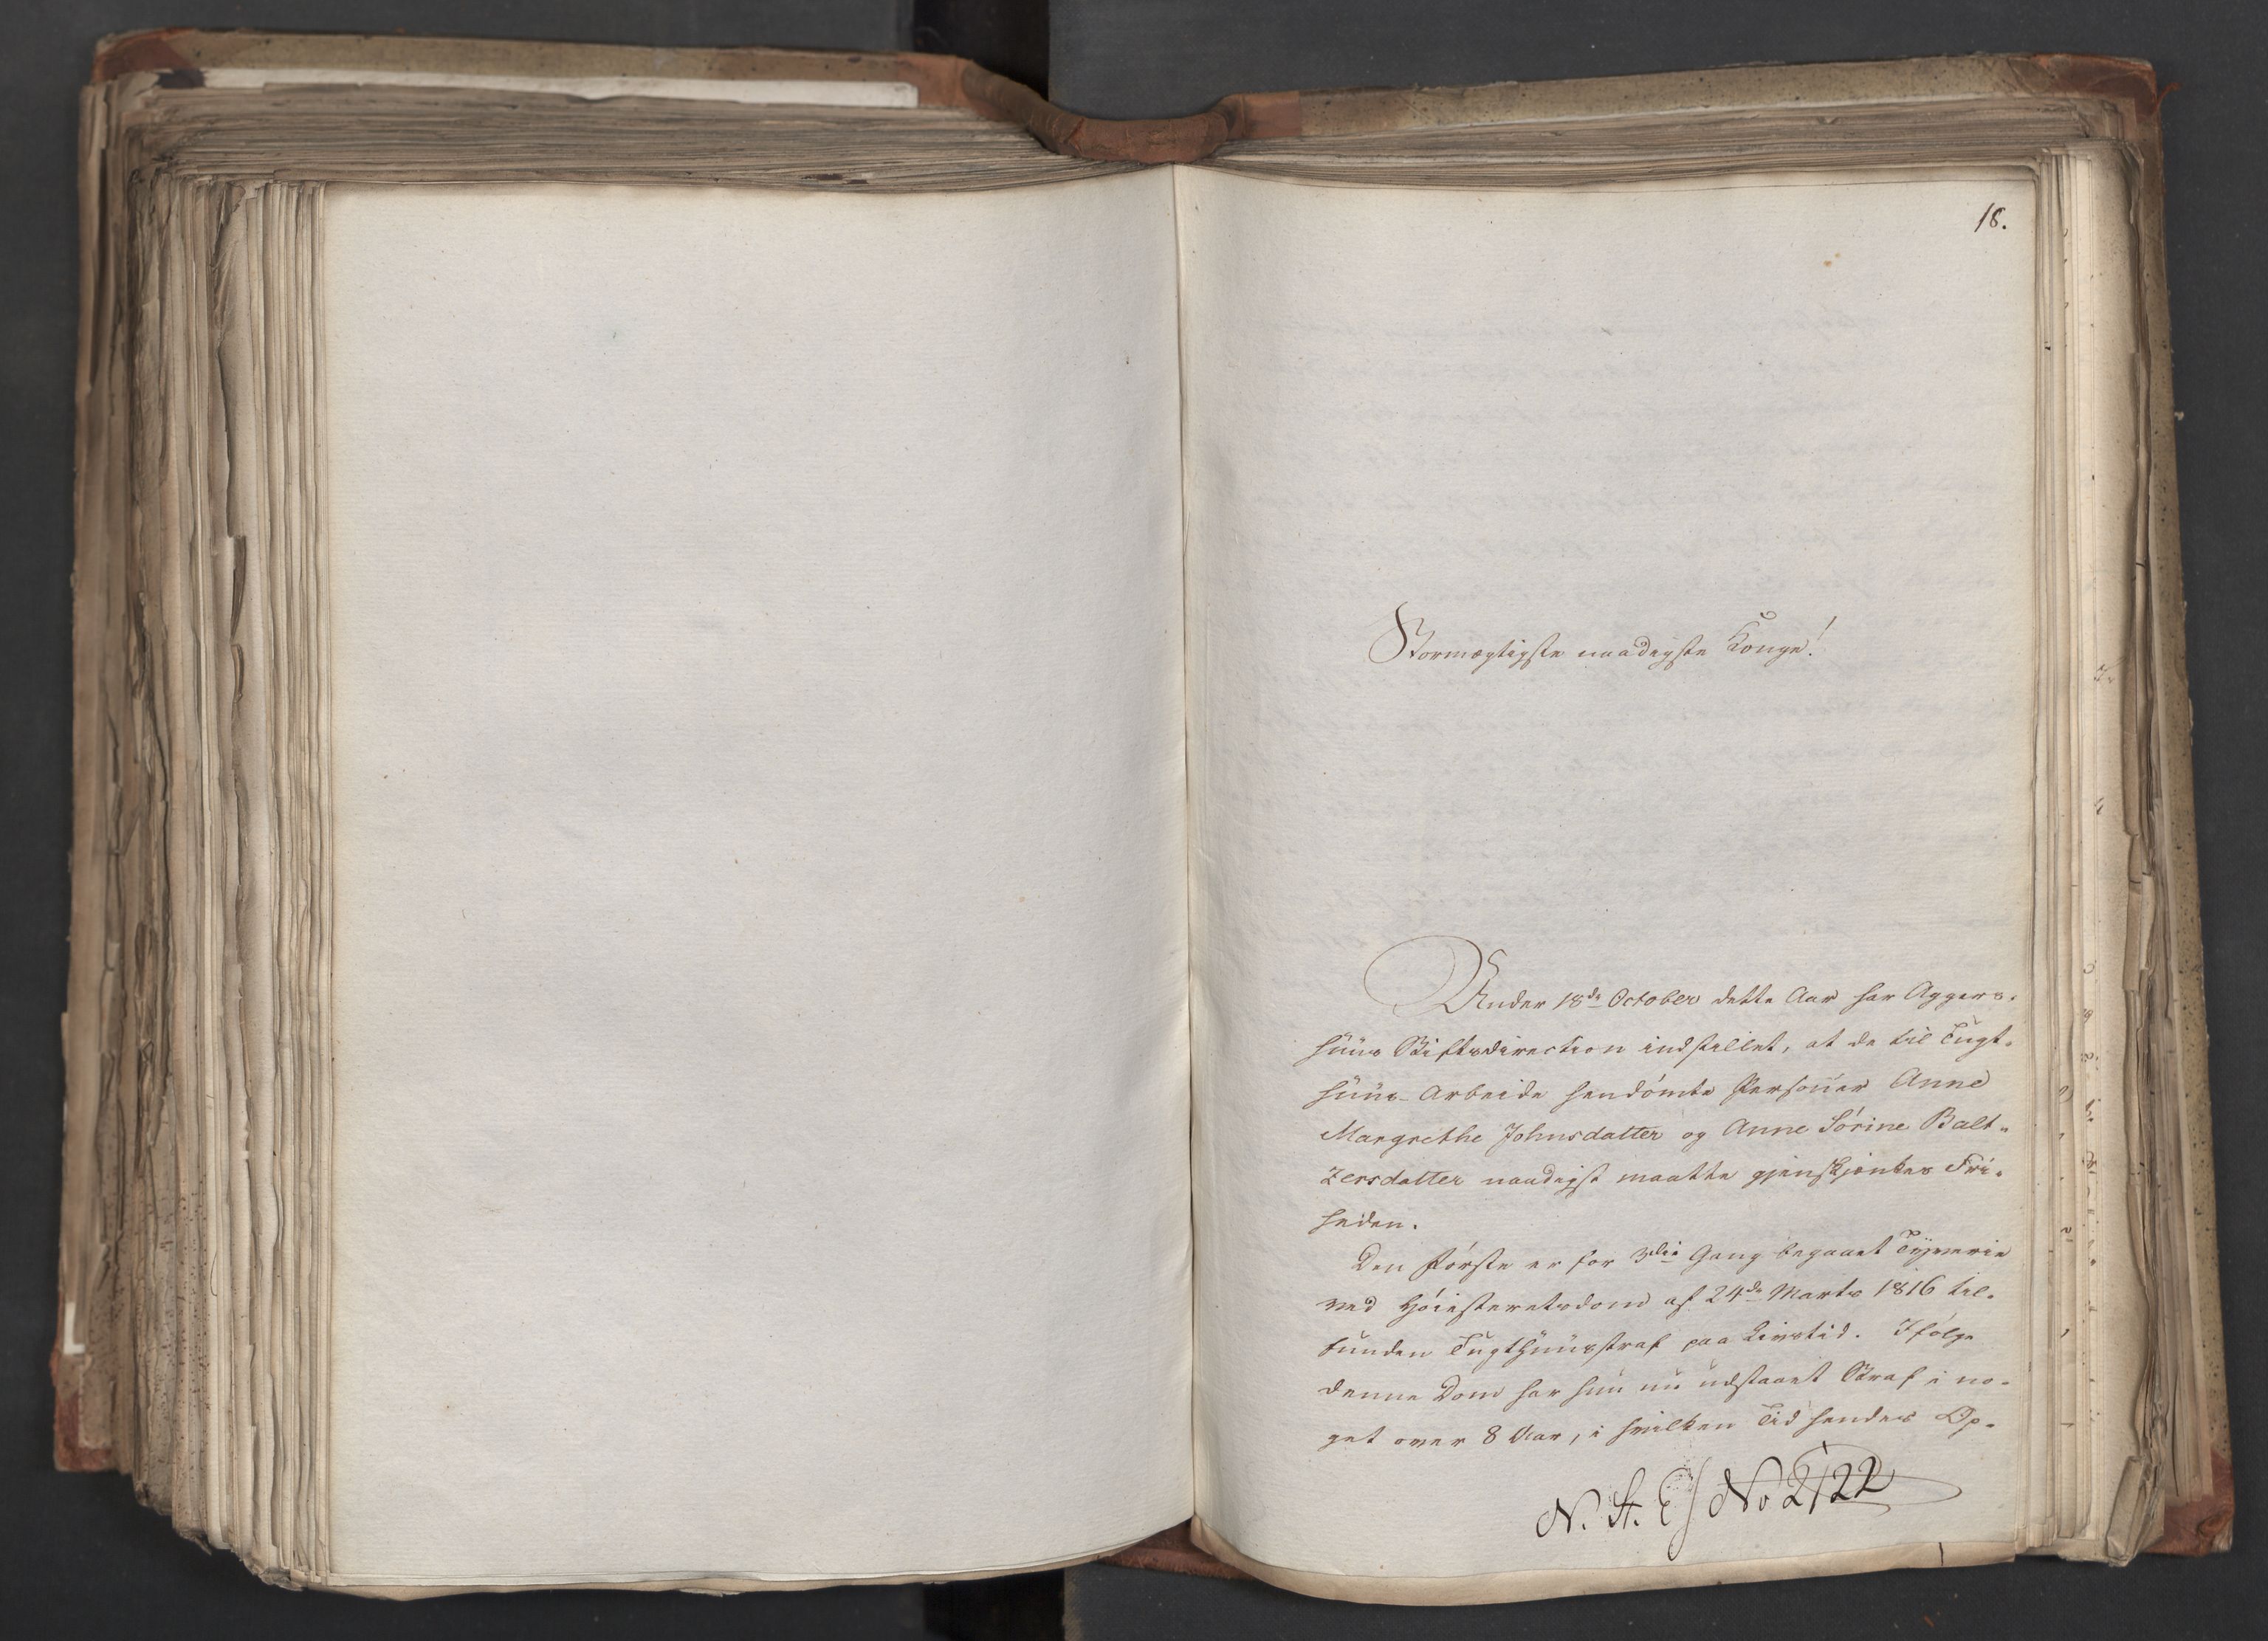 18.
Stormægtigste naadigste Konge!
Under 18de October dette Aar har Aggers-
huus Stiftsdirection indstillet, at de til Tugt-
huus-Arbeide hendømte Personer Anne
Margrethe Johnsdatter og Anne Sørine Balt-
zersdatter naadigst maatte gjenskjænkes Fri-
heden.
Den første er for 3die Gang begaaet Tyverie
ved Høiesteretsdom af 24de Marts 1816 til-
funden Tugthuusstraf paa Livstid. Ifølge
denne Dom har hun nu udstaaet Straf i no-
get over 8 Aar, i hvilken Tid hendes Op-
N. St. E/ No 2122